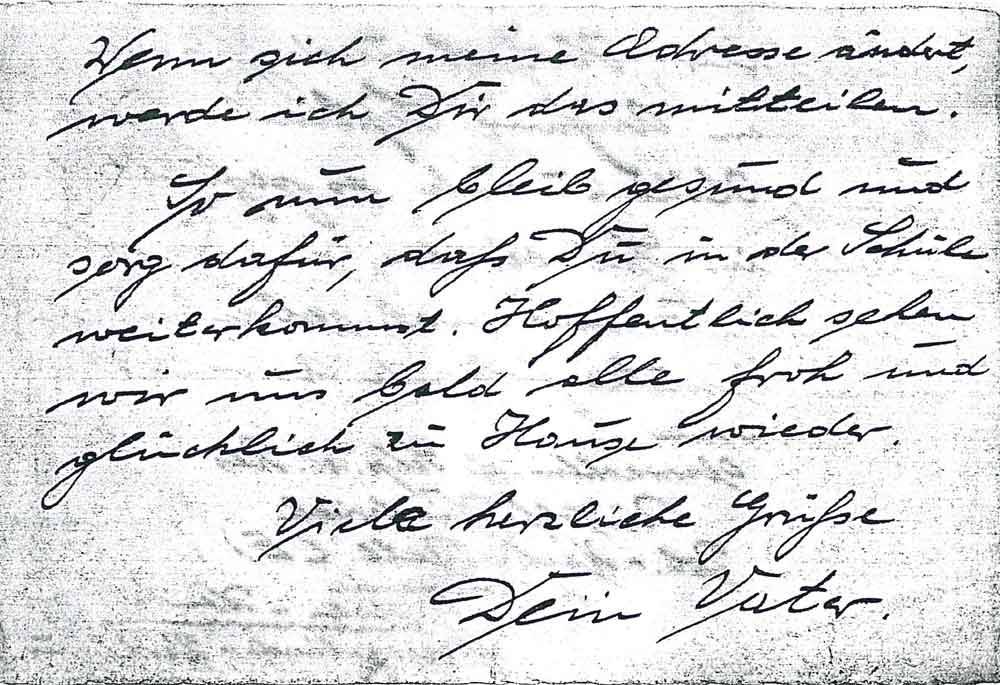 Wenn sich meine Adresse ändert,
werde ich Dir das mitteilen.
So nun bleib gesund und
sorg dafür, daß Du in der Schule
weiterkommst. Hoffentlich sehen
wir uns bald alle froh und
glücklich zu Hause wieder.
Viele herzliche Grüße
Dein Vater.